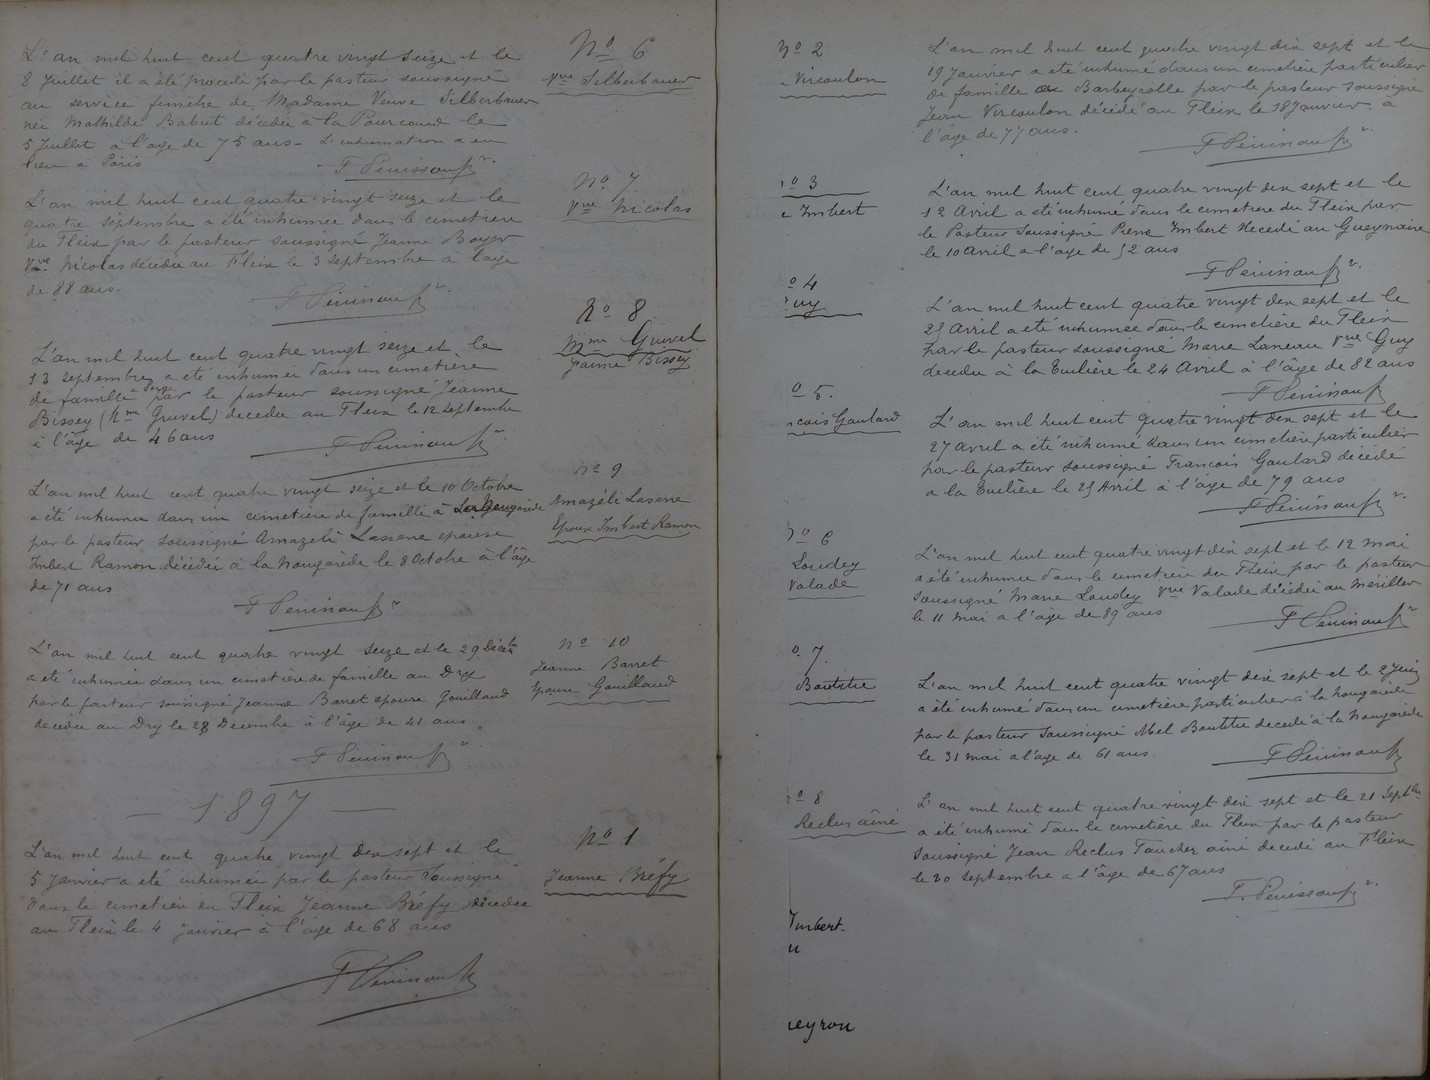 L'an mil huit cent quatre vingt seize et le
8 Juillet il a été procédé par le pasteur soussigné
au service funèbre de Madame Veuve Silberbauer
née Mathilde Babut décédée à la le
5 Juillet à l'âge de 75 ans - L'inhumation a eu
lieu à Paris
No 6
Vve Silberbauer
L'an mil huit cent quatre-vingt-seize et le
quatre septembre a été inhumée dans le cimetière
du Fleix par le pasteur soussigné Jeanne Boyer
Vve Nicolas décédée au Fleix le 3 septembre à l'âge
de 88 ans.
No 7
Vve Nicolas
L'an mil huit cent quatre vingt seize et le
13 septembre a été inhumée dans un cimetière
de famille par le pasteur soussigné Jeanne
Bissey (Mme Gruvel) décédée au Fleix le 12 septembre
à l'âge de 46 ans
No 8
Mme Gruvel
Jeanne Bissey
L'an mil huit cent quatre vingt seize et le 10 Octobre
a été inhumée dans un cimetière de famille à
par le pasteur soussigné Amazéli Laserre épouse
Imbert Ramon décédée à la Nougarède le 8 Octobre à l'âge
de 71 ans
No 9
Amazéli Laserre
Epouse Imbert Ramon
L'an mil huit cent quatre vingt seize et le 29 Décbre
a été inhumée dans un cimetière de famille au Dry
par le pasteur soussigné Jeanne Barret épouse Gouillaud
décédée au Dry le 28 Décembre à l'âge de 41 ans
No 10
Jeanne Barret
Epouse Gouillaud
— 1897 —
L'an mil huit cent quatre vingt dix sept et le
5 Janvier a été inhumée par le pasteur soussigné
dans le cimetière du Fleix Jeanne Bréfy décédée
au Fleix le 4 janvier à l'âge de 68 ans
No 1
Jeanne Bréfy
No 2
Vircoulon
L'an mil huit cent quatre vingt dix sept et le
19 Janvier a été inhumé dans un cimetière particulier
de famille Barbeyrolle par le pasteur soussigné
Jean Vircoulon décédé au Fleix le 18 Janvier à
l'âge de 77 ans.
o 3
e Imbert
L'an mil huit cent quatre vingt dix sept et le
12 Avril a été inhumé dans le cimetière du Fleix par
le Pasteur soussigné Pierre Imbert décédé au Gueynaire
le 10 avril à l'âge de 52 ans
o 4
uy
L'an mil huit cent quatre vingt dix sept et le
25 Avril a été inhumée dans le cimetière du Fleix
par le pasteur soussigné Marie Laneau Vve Guy
décédée à la Tuilière le 24 Avril à l'âge de 82 ans
o 5.
cois Goulard
L'an mil huit cent quatre vingt dix sept et le
27 avril a été inhumé dans un cimetière particulier
par le pasteur soussigné François Goulard décédé
a la Tuilière le 25 Avril à l'âge de 79 ans
o 6
Loudey
Valade
L'an mil huit cent quatre vingt dix sept et le 12 mai
a été inhumée dans le cimetière du Fleix par le pasteur
soussigné Marie Loudey Vve Valade décédée au Mérillier
le 11 mai à l'âge de 89 ans
o 7.
Boutitie
L'an mil huit cent quatre vingt dix sept et le 2 Juin
a été inhumé dans un cimetière particulier à la nougarède
par le pasteur soussigné Abel Boutitie décédé à la nougarède
le 31 mai à l'âge de 61 ans.
o 8
Reclus aîné
L'an mil huit cent quatre vingt dix sept et le 21 Septbre
a été inhumé dans le cimetière du Fleix par le pasteur
soussigné Jean Reclus Faucher aîné décédé au Fleix
le 20 septembre à l'âge de 67 ans
Imbert
u
eyrou